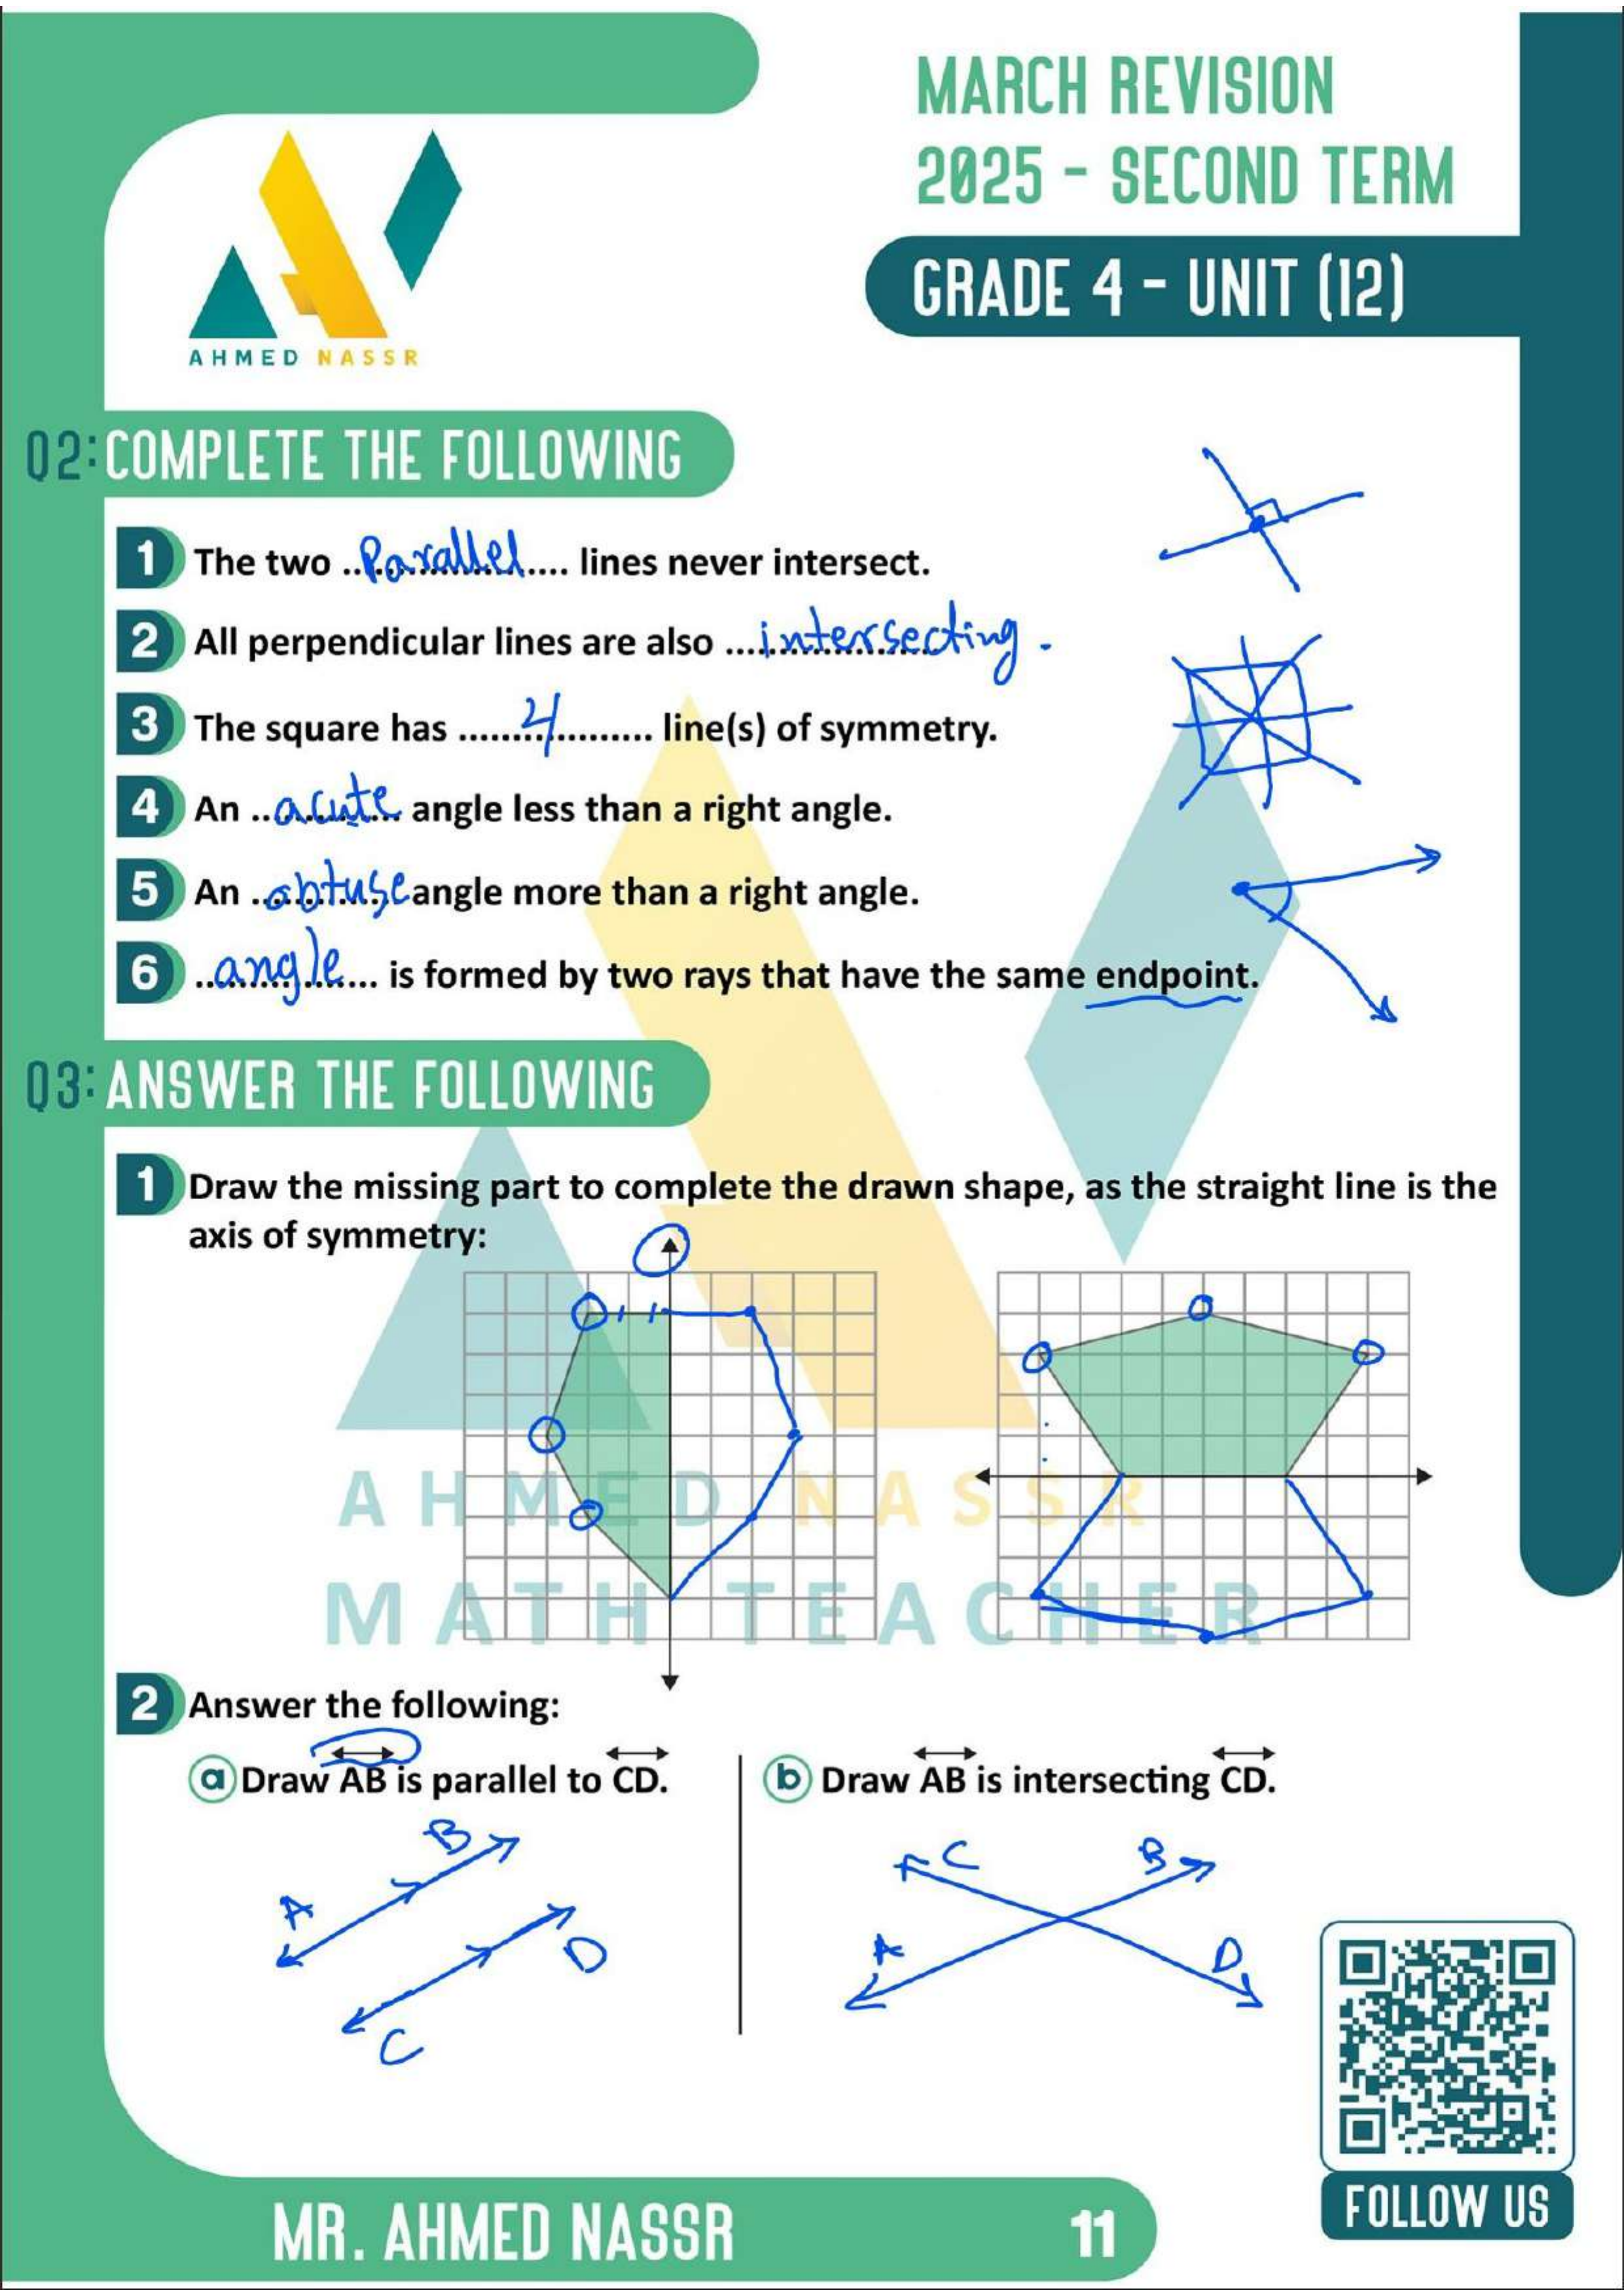 MARCH REVISION
2025 - SECOND TERM
GRADE 4 - UNIT (12)
AHMED NASSR
Q2: COMPLETE THE FOLLOWING
1 The two ..Parallel.... lines never intersect.
2 All perpendicular lines are also ...intersecting.
3 The square has .......4......... line(s) of symmetry.
4 An ..acute angle less than a right angle.
5 An ..obtuse angle more than a right angle.
6 ..angle... is formed by two rays that have the same endpoint.
Q3: ANSWER THE FOLLOWING
1 Draw the missing part to complete the drawn shape, as the straight line is the
axis of symmetry:
AHMED NASSR
MATH TEACHER
2 Answer the following:
a Draw AB is parallel to CD.
b Draw AB is intersecting CD.
A B
C D
C B
A D
FOLLOW US
MR. AHMED NASSR 11